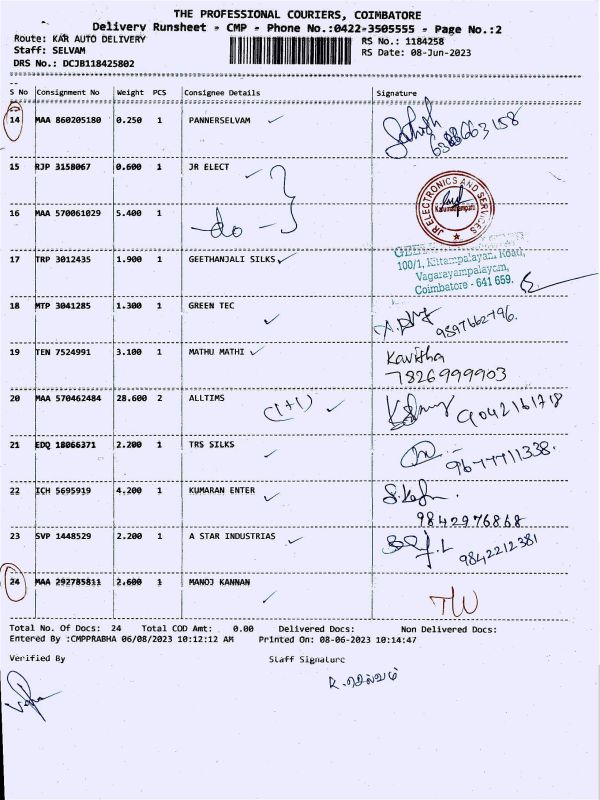 THE PROFESSIONAL COURIERS, COIMBATORE
Delivery Runsheet - CMP - Phone No.:0422-3505555 - Page No.:2
Route: KAR AUTO DELIVERY
RS No.: 1184258
Staff: SELVAM
RS Date: 08-Jun-2023
DRS No.: DCJB118425802
S No Consignment No Weight PCS Consignee Details Signature
14 MAA 860205180 0.250 1 PANNERSELVAM
15 RJP 3158067 0.600 1 JR ELECT
JR ELECTRONICS AND SERVICES
16 MAA 570061029 5.400 1 -do-
17 TRP 3012435 1.900 1 GEETHANJALI SILKS
100/1, Kittampalayan, Road,
Vagarayampalayam,
Coimbatore - 641 659.
18 MTP 3041285 1.300 1 GREEN TEC
9597662796.
19 TEN 7524991 3.100 1 MATHU MATHI Kavitha
7826999903
20 MAA 570462484 28.600 2 ALLTIMS (1+1) 9042161718
21 EDQ 18066371 2.200 1 TRS SILKS
9677711338.
22 ICH 5695919 4.200 1 KUMARAN ENTER
9842976868
23 SVP 1448529 2.200 1 A STAR INDUSTRIAS
9842212381
24 MAA 292785811 2.600 1 MANOJ KANNAN
TW
Total No. Of Docs: 24 Total COD Amt: 0.00 Delivered Docs: Non Delivered Docs:
Entered By :CMPPRABHA 06/08/2023 10:12:12 AM Printed On: 08-06-2023 10:14:47
Verified By Staff Signature